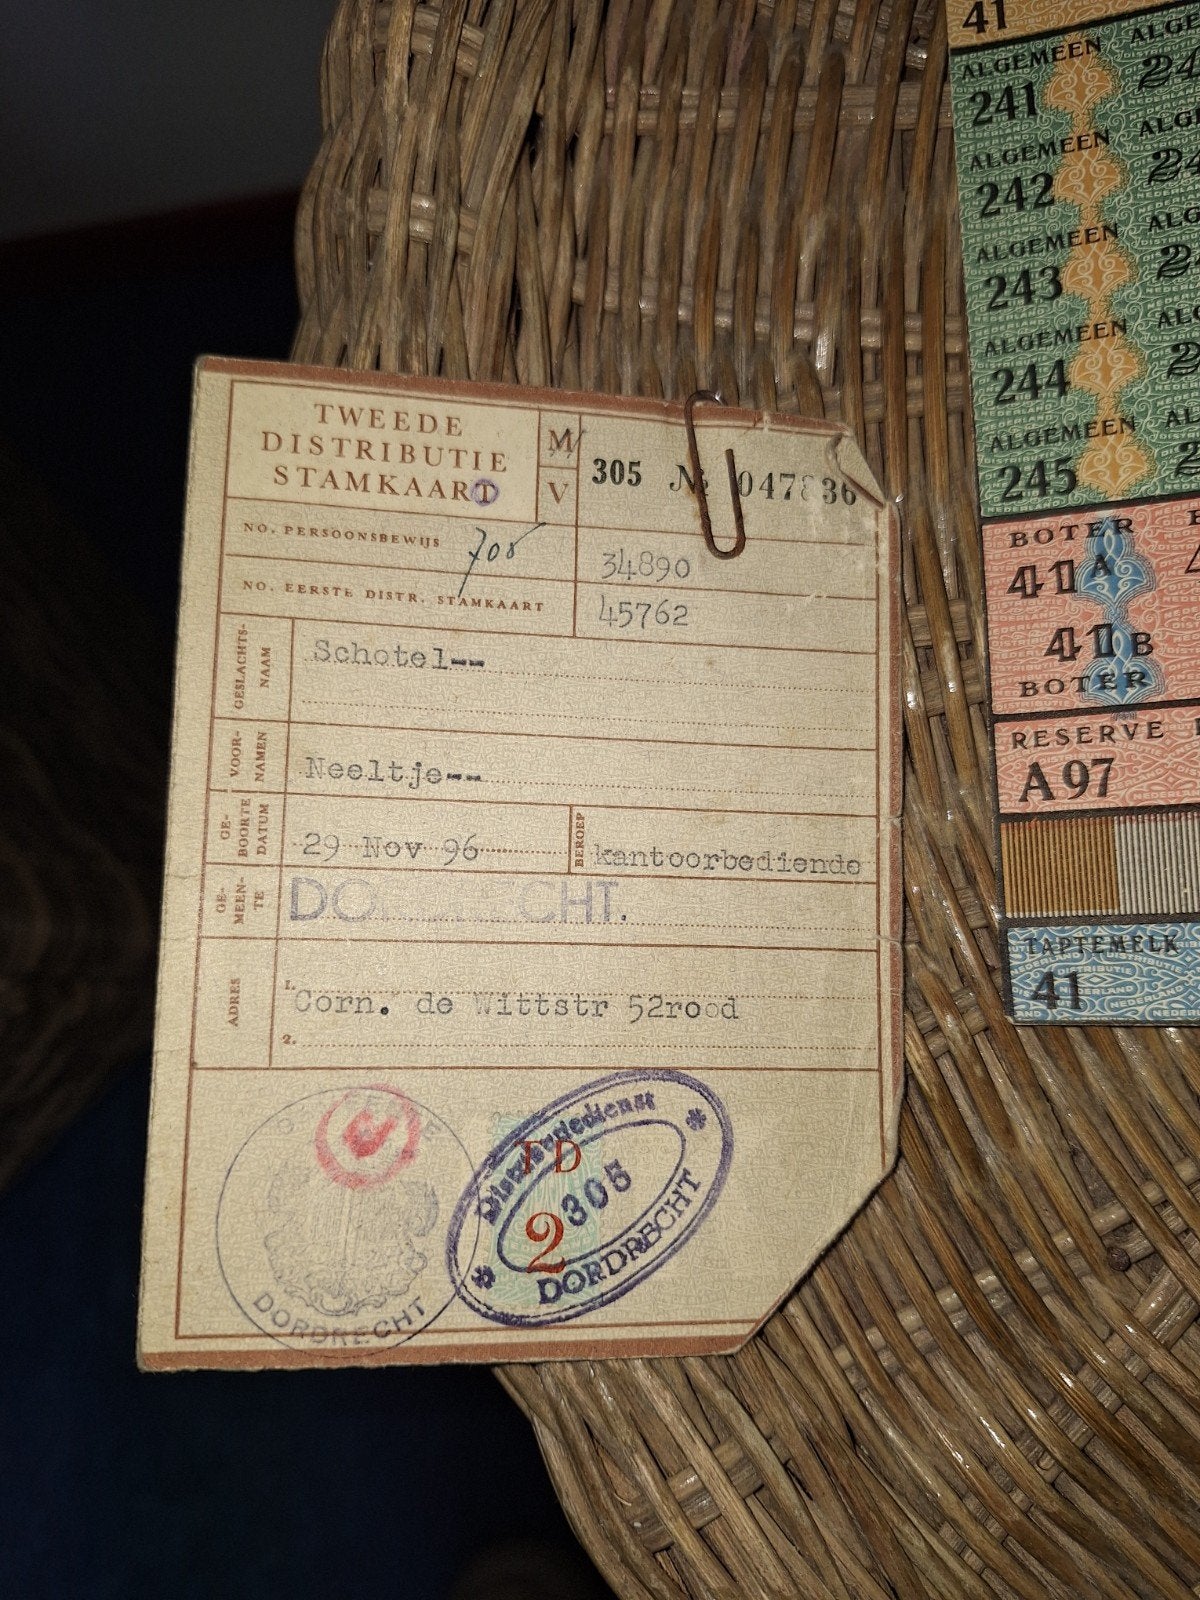 TWEEDE
DISTRIBUTIE
STAMKAART
M
V
305 № 047836
NO. PERSOONSBEWIJS
700
34890
NO. EERSTE DISTR. STAMKAART
45762
GESLACHTS-
NAAM
Schotel--
VOOR-
NAMEN
Neeltje--
GE-
BOORTE
DATUM
29 Nov 96
BEROEP
kantoorbediende
GE-
MEEN-
TE
DORDRECHT.
ADRES
1.
Corn. de Wittstr 52rood
2.
DORDRECHT
Distributiedienst
TD
305
2
DORDRECHT
41
ALGEMEEN
241
ALGEMEEN
242
ALGEMEEN
243
ALGEMEEN
244
ALGEMEEN
245
BOTER
41A
41B
BOTER
RESERVE
A97
TAPTEMELK
41